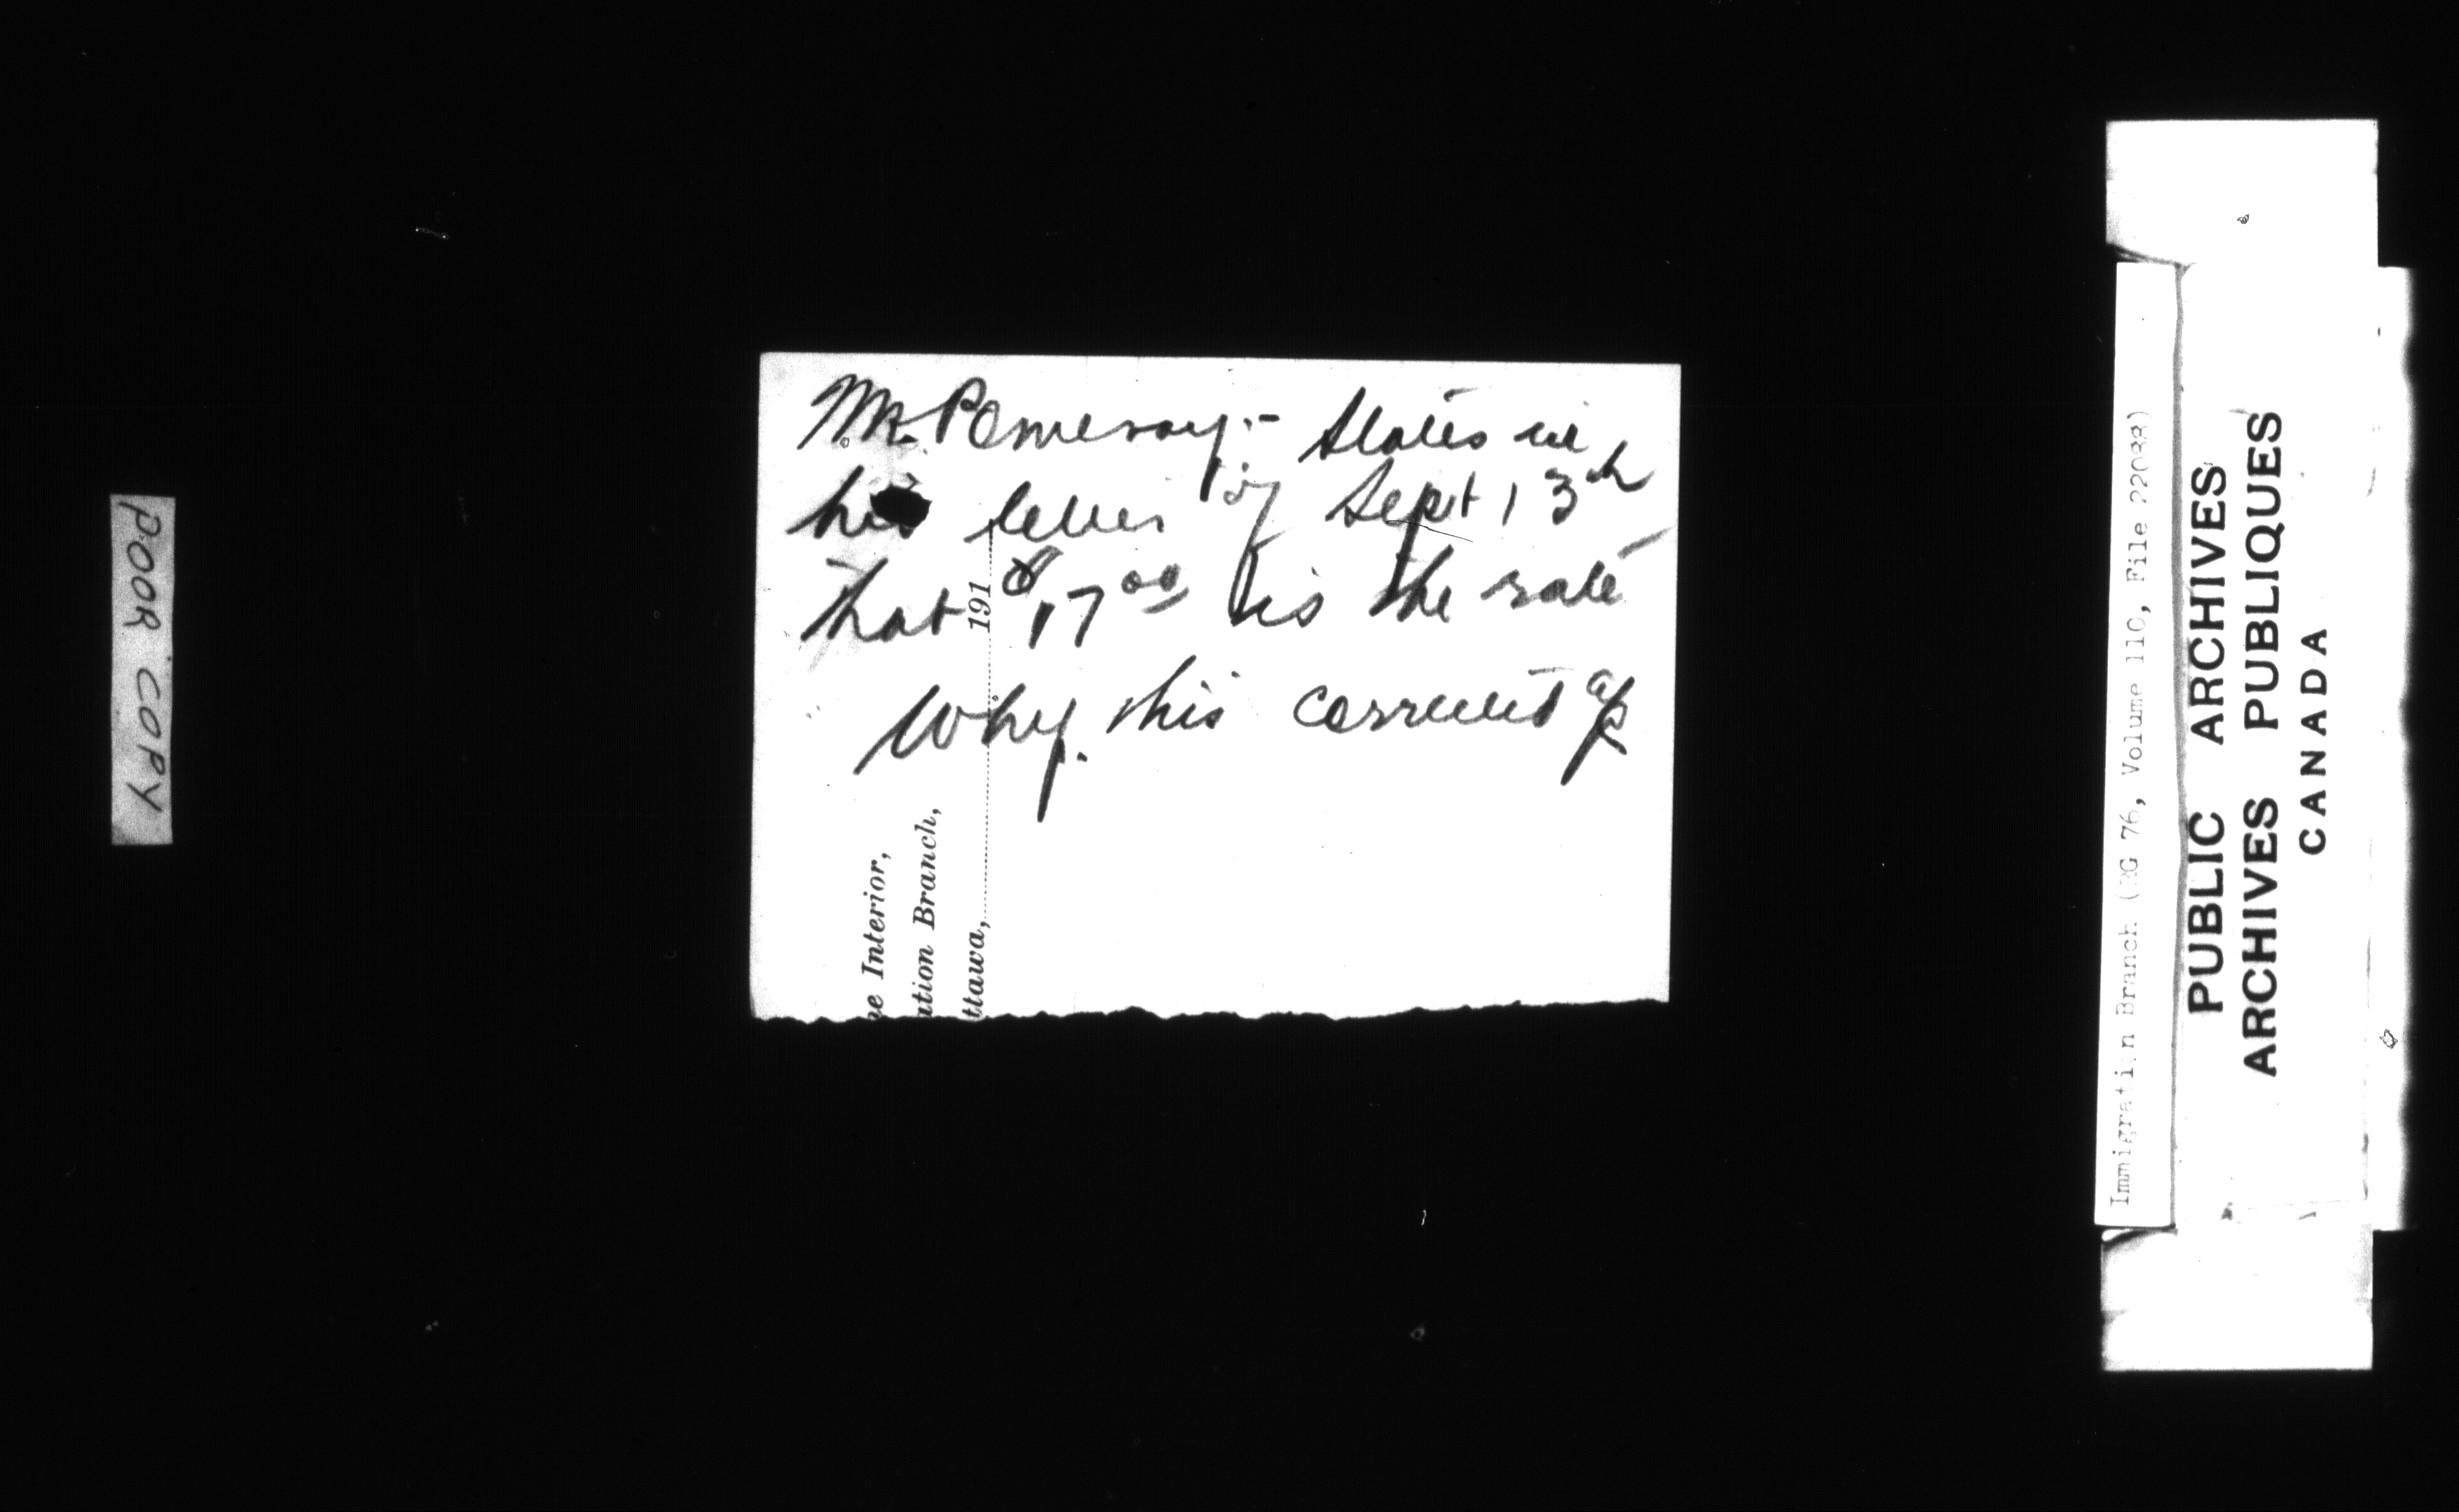 POOR COPY
Mr. Pomeroy:- States in
his letter of Sept 13th
that $17.00 is the rate
Why. this corrected a/c
he Interior,
ation Branch,
ttawa, 191
Immigration Branch (RG 76, Volume 110, File 22088)
PUBLIC ARCHIVES
ARCHIVES PUBLIQUES
CANADA